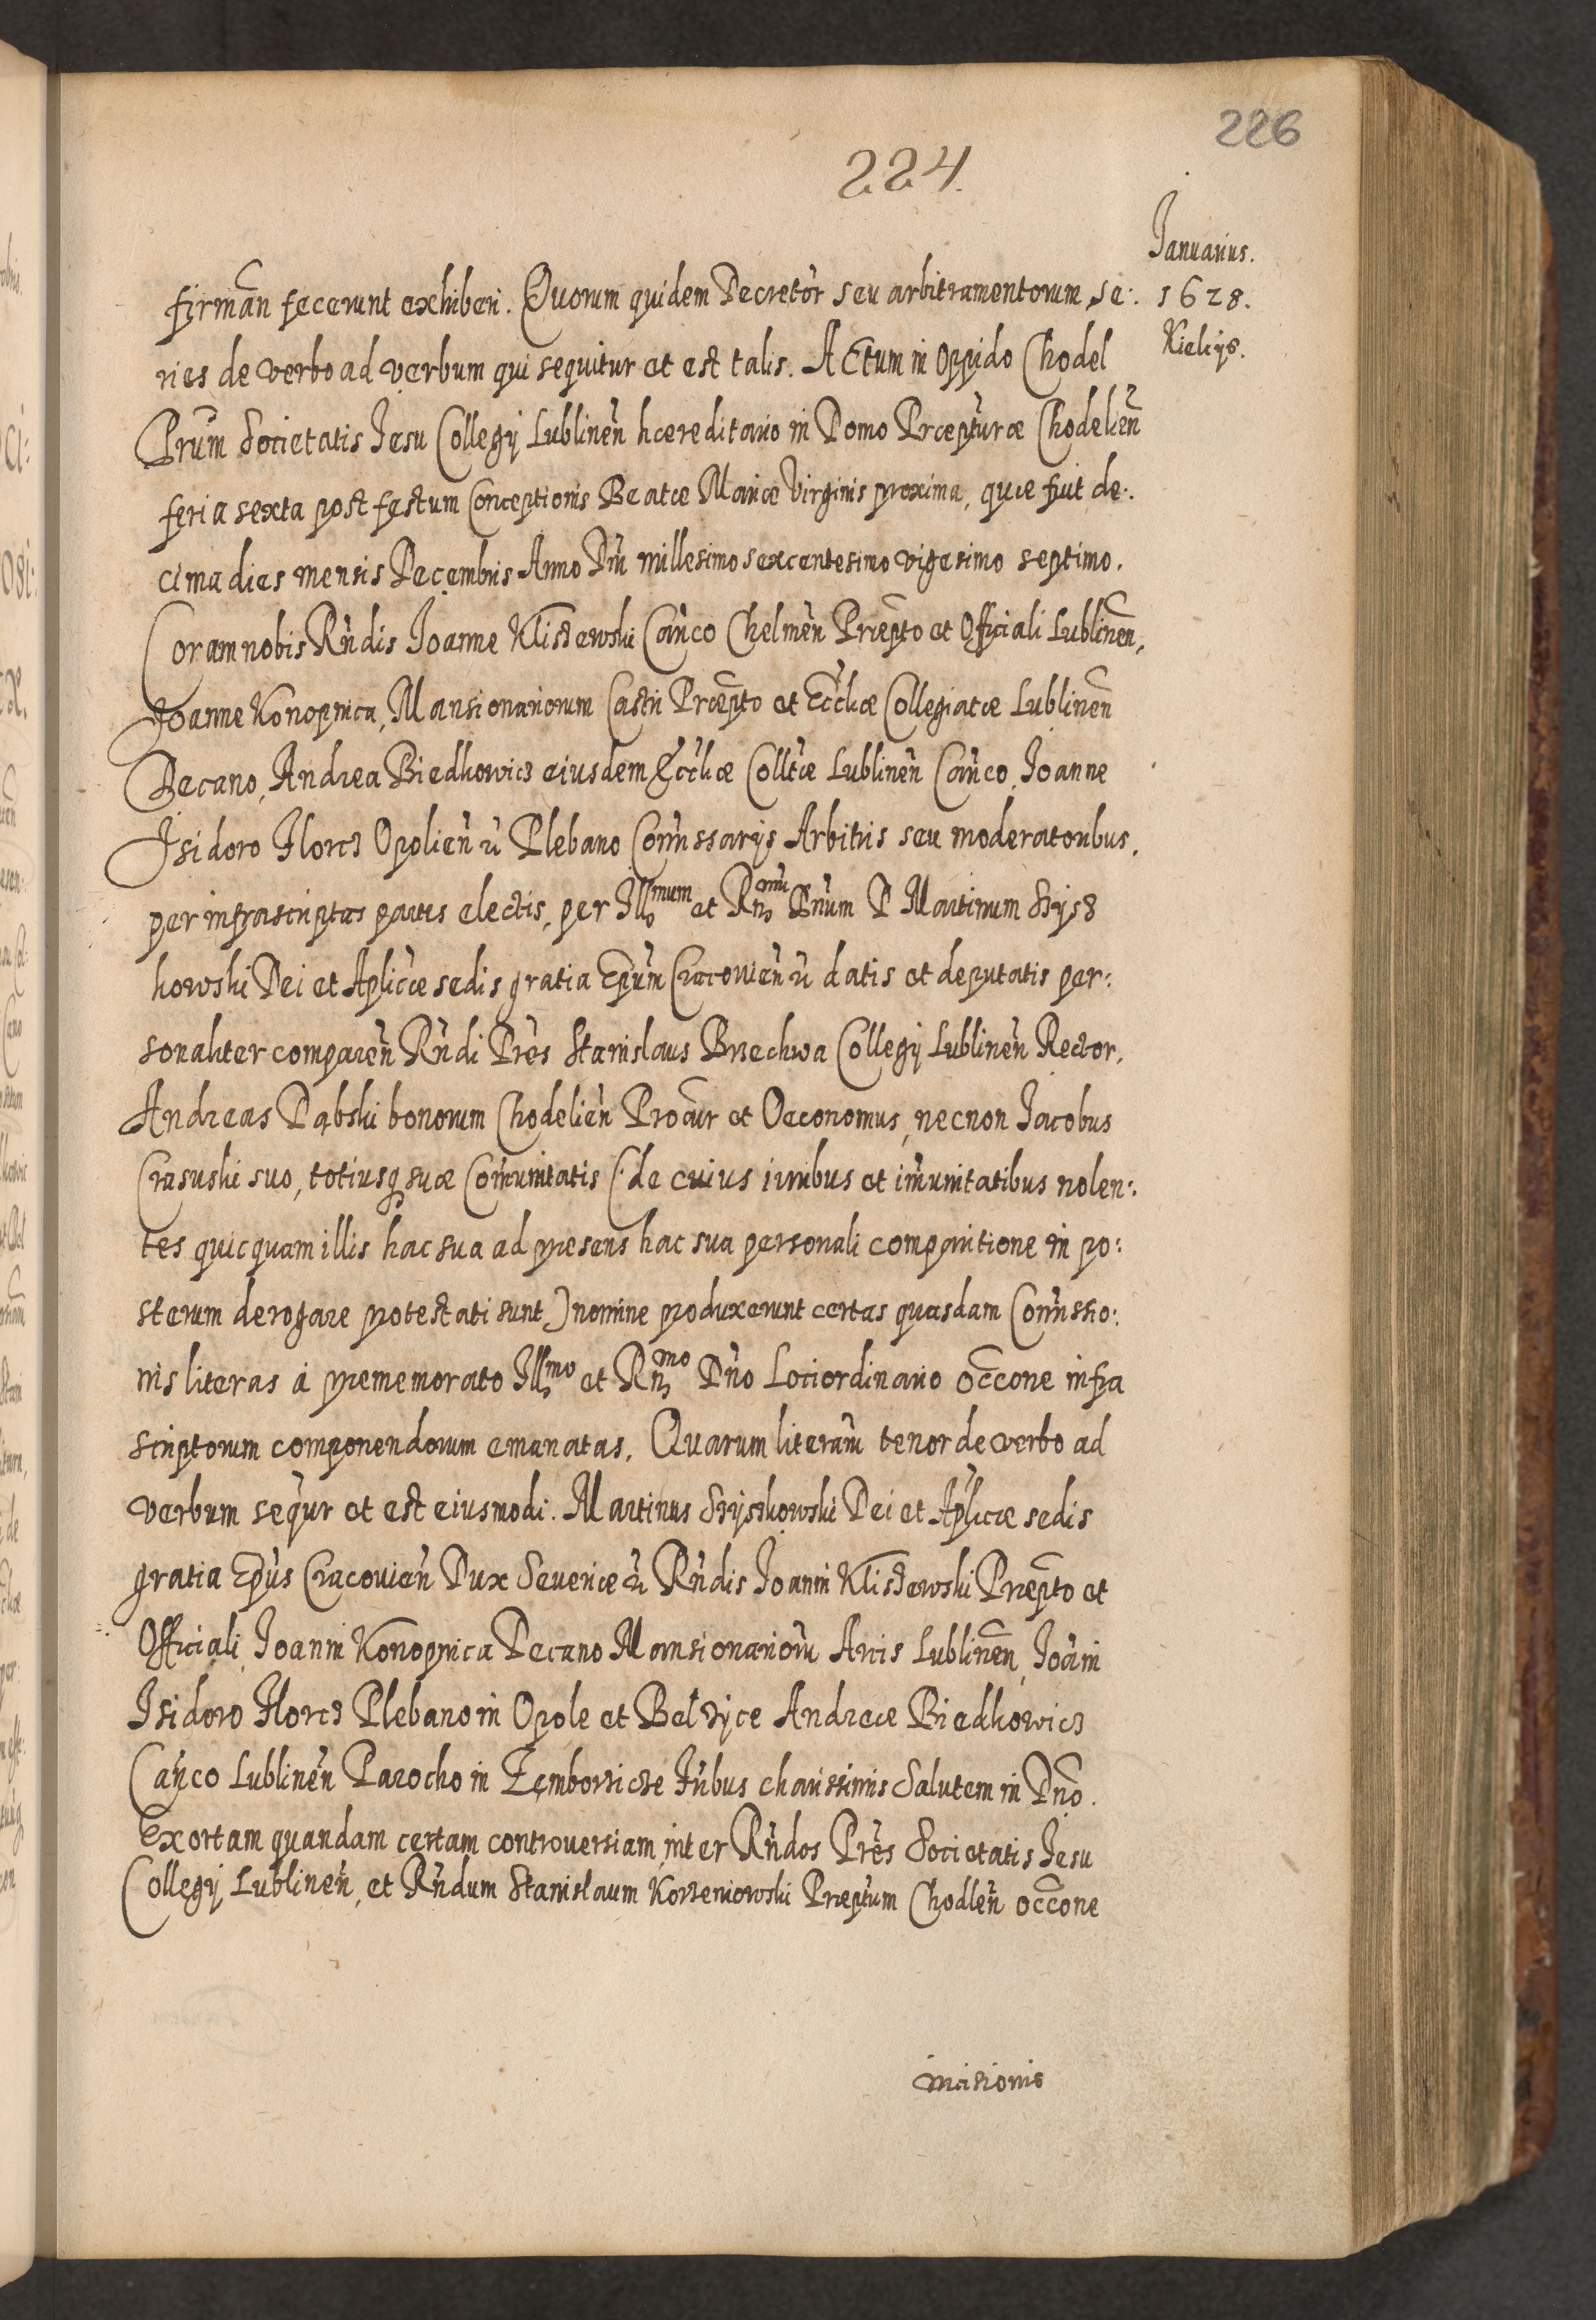 226
224.
Januarius.
1628.
Kielcijs.
firmañ fecerunt exhiberi. Quorum quidem Decretor̃ seu arbitramentorum se:
ries de verbo ad verbum qui sequitur et est talis. ACtum in Oppido Chodel
Prum̃ Societatis Jesu Collegij Lublineñ hæreditario in Domo Præpt̃uræ Chodelieñ
feria sexta post festum Conceptionis Beatæ Mariæ Virginis proxima, quæ fuit de:
cima dies mensis Decembris Anno Dñi millesimo sexcentesimo vigesimo septimo.
Coram nobis Rñdis Joanne Klistewski Cañco Chelmeñ Præpto et Officiali Lublineñ,
Joanne Konopnica, Mansionariorum Castri Præpto et Ecc̃liæ Collegiatæ Lublineñ
Decano, Andrea Biedkowicz eiusdem Ecc̃liæ Collt̃æ Lublineñ Cañco, Joanne
Isidoro Florcz Opolieñ z̃ Plebano Com̃issarijs Arbitris seu moderatoribus,
per infrascriptas partes electis, per Ill^mum et Rñ^mũ Dñum D Martinum Szysz
kowski Dei et Aplicæ sedis gratia Epũm Cracovieñ z̃ datis et deputatis per:
sonaliter compareñ Rñdi Pr̃es Stanislaus Brzechwa Collegij Lublineñ Rector,
Andreas Dąbski bonorum Chodelieñ Procur̃ et Oeconomus, necnon Jacobus
Crasuski suo, totiusq suæ Com̃unitatis (: de cuius iuribus et im̃unitatibus nolen:
tes quicquam illis hac sua ad præsens hac sua personali comparitione in po:
sterum derogare protestati sunt,) nomine produxerunt certas quasdam Com̃issio:
nis literas à prememorato Ill^mo et Rñ^mo Dño Lociordinario occ̃one infra
scriptorum componendorum emanatas. Quarum literarũ tenor de verbo ad
verbum sequr̃ et est eiusmodi. Martinus Szyszkowski Dei et Aplicæ sedis
gratia Epũs Cracovieñ Dux Severiæ z̃ Rñdis Joanni Klistewski Præpto et
Officiali, Joanni Konopnica Decano Mansionariorũ Arcis Lublineñ, Joañi
Isidoro Florcz Plebano in Opole et Bełżyce Andreæ Biedkowicz
Cañco Lublineñ Parocho in Zemborzicze Fr̃ibus charissimis Salutem in Dño.
Exortam quandam certam controversiam inter Rñdos Pr̃es Societatis Jesu
Collegij Lublineñ, et Rñdum Stanislaum Korzeniowski Præptum Chodleñ occ̃one
incisionis